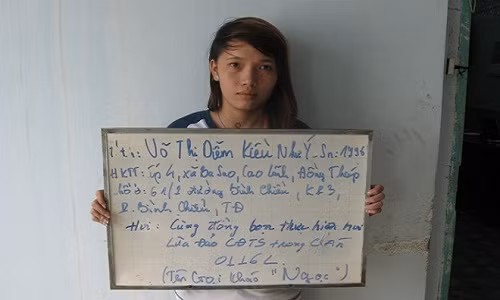 Võ Thị Diễm Kiều Như Ý - Sn: 1996
HKTT: ấp 4, xã Ba Sao, Cao Lãnh, Đồng Tháp
61/1 đường Bình Chiểu, KP3,
P. Bình Chiểu, TĐ
Hvi: Cùng đồng bọn thực hiện
Lừa Đảo CĐTS trong
(Tên Gọi Khác "Ngọc")